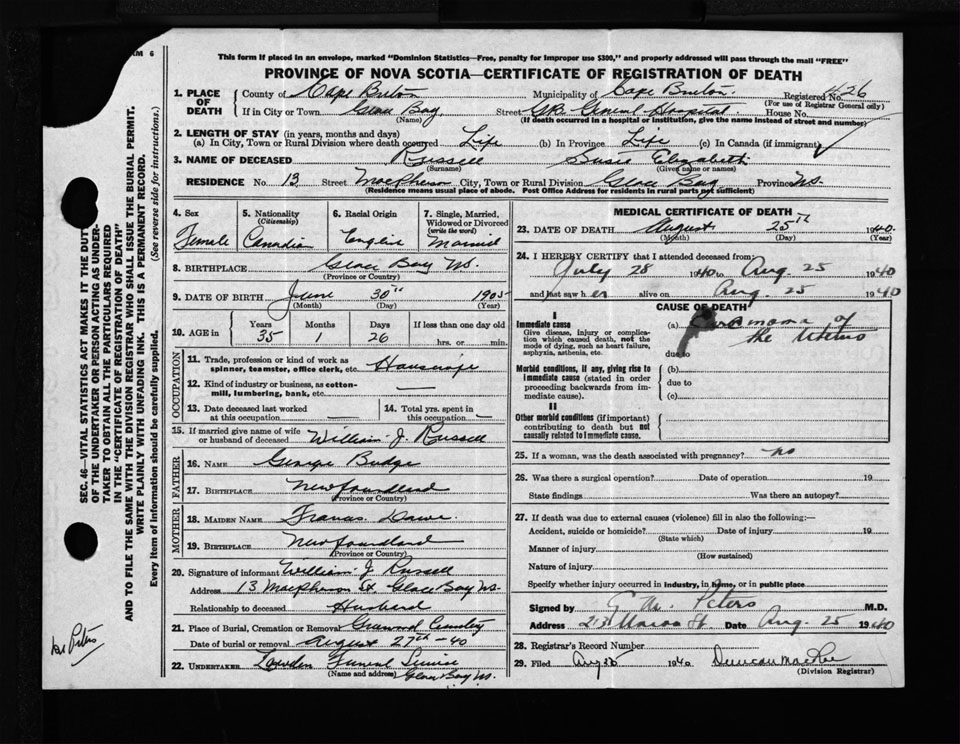 RM 6
This form if placed in an envelope, marked "Dominion Statistics—Free, penalty for improper use $300," and properly addressed will pass through the mail "FREE"
PROVINCE OF NOVA SCOTIA—CERTIFICATE OF REGISTRATION OF DEATH
1. PLACE OF DEATH County of Cape Breton Municipality of Cape Breton Registered No. 426
(For use of Registrar General only)
If in City or Town Glace Bay Street General Hospital House No.
(Name) (If death occurred in a hospital or institution, give the name instead of street and number)
2. LENGTH OF STAY (in years, months and days)
(a) In City, Town or Rural Division where death occurred Life (b) In Province Life (c) In Canada (if immigrant)
3. NAME OF DECEASED Russell Susie Elizabeth
(Surname) (Given name or names)
RESIDENCE No. 13 Street Macpherson City, Town or Rural Division Glace Bay Province N.S.
(Residence means usual place of abode. Post Office Address for residents in rural parts not sufficient)
4. Sex Female
5. Nationality (Citizenship) Canadian
6. Racial Origin English
7. Single, Married, Widowed or Divorced (write the word) Married
8. BIRTHPLACE Glace Bay N.S.
(Province or Country)
9. DATE OF BIRTH June 30th 1905
(Month) (Day) (Year)
10. AGE in Years Months Days If less than one day old
35 1 26 hrs. or min.
OCCUPATION
11. Trade, profession or kind of work as spinner, teamster, office clerk, etc. Housewife
12. Kind of industry or business, as cotton-mill, lumbering, bank, etc. —
13. Date deceased last worked at this occupation —
14. Total yrs. spent in this occupation —
15. If married give name of wife or husband of deceased William J. Russell
FATHER
16. NAME George Budge
17. BIRTHPLACE Newfoundland
(Province or Country)
MOTHER
18. MAIDEN NAME Frances Dawe
19. BIRTHPLACE Newfoundland
(Province or Country)
20. Signature of informant William J. Russell
Address 13 Macpherson St. Glace Bay N.S.
Relationship to deceased Husband
21. Place of Burial, Cremation or Removal Cemetery
Date of burial or removal August 27th - 40
22. UNDERTAKER Funeral Service
(Name and address) Glace Bay N.S.
MEDICAL CERTIFICATE OF DEATH
23. DATE OF DEATH August 25TH 1940.
(Month) (Day) (Year)
24. I HEREBY CERTIFY that I attended deceased from:
July 28 1940 to Aug. 25 1940
and last saw her alive on Aug. 25 1940
CAUSE OF DEATH
I
Immediate cause
Give disease, injury or complication which caused death, not the mode of dying, such as heart failure, asphyxia, asthenia, etc.
(a) Carcinoma of the Uterus
due to
Morbid conditions, if any, giving rise to immediate cause (stated in order proceeding backwards from immediate cause).
(b)
due to
(c)
II
Other morbid conditions (if important) contributing to death but not causally related to immediate cause.
25. If a woman, was the death associated with pregnancy? no
26. Was there a surgical operation? Date of operation 19
State findings Was there an autopsy?
27. If death was due to external causes (violence) fill in also the following:—
Accident, suicide or homicide? Date of injury 19
(State which)
Manner of injury
(How sustained)
Nature of injury
Specify whether injury occurred in industry, in home, or in public place
Signed by Peters M.D.
Address Date Aug. 25 1940
28. Registrar's Record Number
29. Filed Aug 1940 Duncan
(Division Registrar)
SEC. 46—VITAL STATISTICS ACT MAKES IT THE DUTY
OF THE UNDERTAKER OR PERSON ACTING AS UNDER-
TAKER TO OBTAIN ALL THE PARTICULARS REQUIRED
IN THE "CERTIFICATE OF REGISTRATION OF DEATH"
AND TO FILE THE SAME WITH THE DIVISION REGISTRAR WHO SHALL ISSUE THE BURIAL PERMIT.
WRITE PLAINLY WITH UNFADING INK. THIS IS A PERMANENT RECORD.
Every item of information should be carefully supplied. (See reverse side for instructions.)
Peters